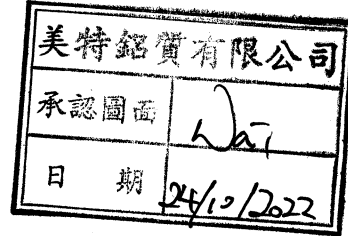 美特鋁質有限公司
承認圖面 Wai
日 期 24/10/2022